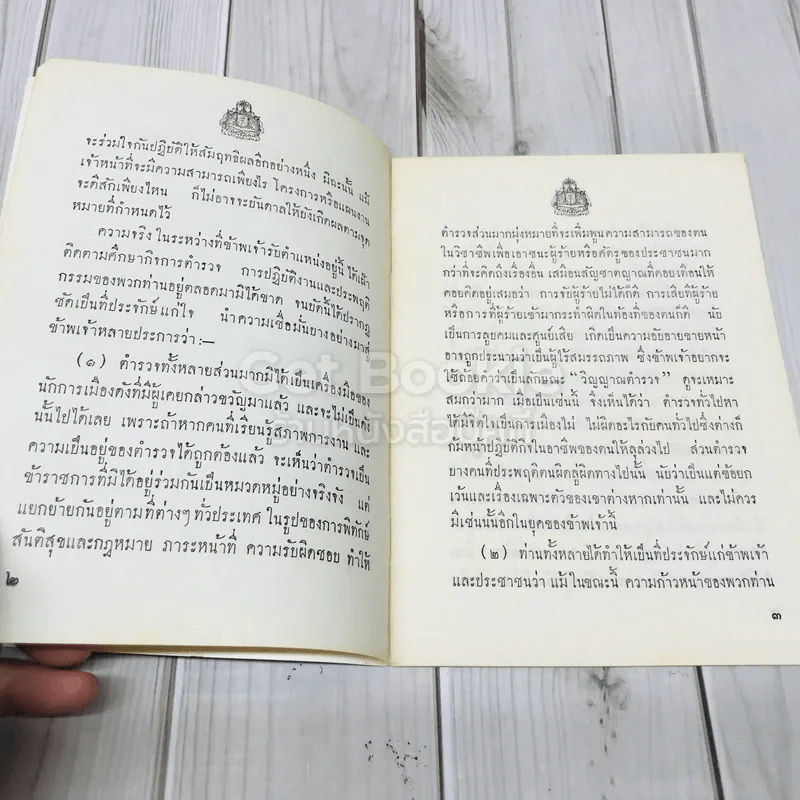 จะร่วมใจกันปฏิบัติให้สัมฤทธิผลอีกอย่างหนึ่ง มิฉะนั้น แม้
เจ้าหน้าที่จะมีความสามารถเพียงไร โครงการหรือแผนงาน
จะดีสักเพียงไหน ก็ไม่อาจจะบันดาลให้บังเกิดผลตามจุด
หมายที่กำหนดไว้
ความจริง ในระหว่างที่ข้าพเจ้ารับตำแหน่งอยู่นี้ ได้เฝ้า
ติดตามศึกษากิจการตำรวจ การปฏิบัติงานและประพฤติ
กรรมของพวกท่านอยู่ตลอดมามิได้ขาด จนบัดนี้ได้ปรากฏ
ชัดเป็นที่ประจักษ์แก่ใจ นำความเชื่อมั่นบางอย่างมาสู่
ข้าพเจ้าหลายประการว่า :—
(๑) ตำรวจทั้งหลายส่วนมากมิได้เป็นเครื่องมือของ
นักการเมืองดังที่มีผู้เคยกล่าวขวัญมาแล้ว และจะไม่เป็นดัง
นั้นไปได้เลย เพราะถ้าหากคนที่เรียนรู้สภาพการงาน และ
ความเป็นอยู่ของตำรวจได้ถูกต้องแล้ว จะเห็นว่าตำรวจเป็น
ข้าราชการที่มิได้อยู่ร่วมกันเป็นหมวดหมู่อย่างจริงจัง แต่
แยกย้ายกันอยู่ตามที่ต่างๆ ทั่วประเทศ ในรูปของการพิทักษ์
สันติสุขและกฎหมาย ภาระหน้าที่ ความรับผิดชอบ ทำให้
๒
ตำรวจส่วนมากมุ่งหมายที่จะเพิ่มพูนความสามารถของตน
ในวิชาชีพเพื่อเอาชนะผู้ร้ายหรือศัตรูของประชาชนมาก
กว่าที่จะคิดถึงเรื่องอื่น เสมือนสัญชาตญาณที่คอยเตือนให้
คอยคิดอยู่เสมอว่า การจับผู้ร้ายไม่ได้ก็ดี การเสียทีผู้ร้าย
หรือการที่ผู้ร้ายเข้ามากระทำผิดในท้องที่ของตนก็ดี นับ
เป็นการลูบคมและศูนย์เสีย เกิดเป็นความอับอายขายหน้า
อาจถูกประณามว่าเป็นผู้ไร้สมรรถภาพ ซึ่งข้าพเจ้าอยากจะ
ใช้ถ้อยคำว่าเป็นลักษณะ “วิญญาณตำรวจ” ดูจะเหมาะ
สมกว่ามาก เมื่อเป็นเช่นนี้ จึงเห็นได้ว่า ตำรวจทั่วไปหา
ได้มีจิตใจเป็นการเมืองไม่ ไม่ผิดอะไรกับคนทั่วไปซึ่งต่างก็
ก้มหน้าปฏิบัติกิจในอาชีพของตนให้ลุล่วงไป ส่วนตำรวจ
บางคนที่ประพฤติตนผิดลู่ผิดทางไปนั้น นับว่าเป็นแต่ข้อยก
เว้นและเรื่องเฉพาะตัวของเขาต่างหากเท่านั้น และไม่ควร
มีเช่นนั้นอีกในยุคของข้าพเจ้านี้
(๒) ท่านทั้งหลายได้ทำให้เป็นที่ประจักษ์แก่ข้าพเจ้า
และประชาชนว่า แม้ในขณะนี้ ความก้าวหน้าของพวกท่าน
๓